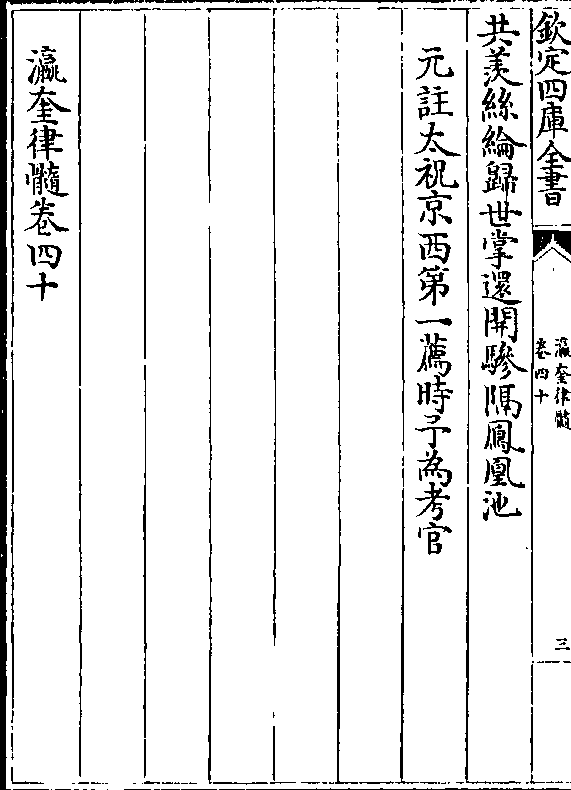 欽定四庫全書
瀛奎律髓
卷四十
三
共羨絲綸歸世掌還開驂隔鳳凰池
元註太祝京西第一薦時予為考官
瀛奎律髓卷四十